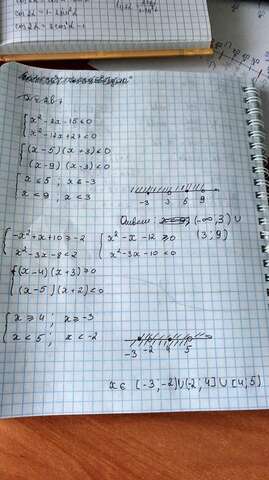 x² - 2x - 15 < 0
x² - 12x + 27 < 0
(x - 5)(x + 3) < 0
(x - 9)(x - 3) < 0
x < 5 ; x < -3
x < 9 , x < 3
-3 3 5 9
Ответ: (-∞, 3) ∪
(3; 9)
-x² + x + 10 ≥ -2
x² - 3x - 8 < 2
x² - x - 12 ≥ 0
x² - 3x - 10 < 0
(x - 4)(x + 3) ≥ 0
(x - 5)(x + 2) < 0
x ≥ 4 ; x ≥ -3
x < 5 ; x < -2
-3 -2 4 5
x ∈ [-3; -2) ∪ (-2; 4] ∪ [4; 5)